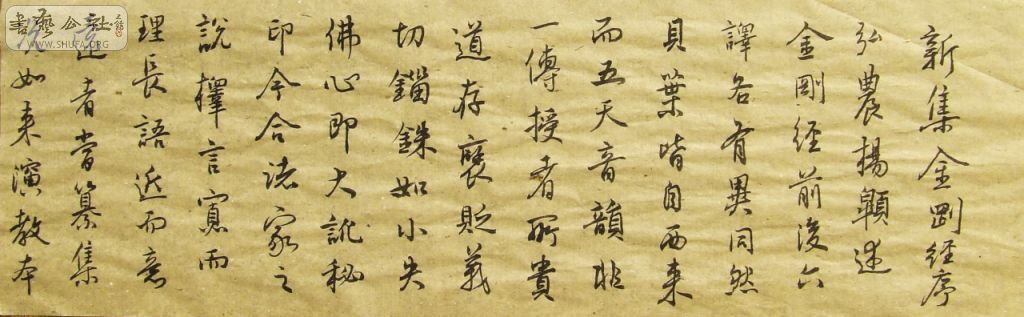 新集金剛經序
弘農楊顒述
金剛經前後六
譯各有異同然
貝葉皆自西来
而五天音韻非
一傳授者所貴
道存褒貶義
切錙銖如小失
佛心即大訛秘
印今合諸家之
說擇言寡而
理長語近而意
遠者當纂集
如来演教本
書藝公社
WWW.SHUFA.ORG